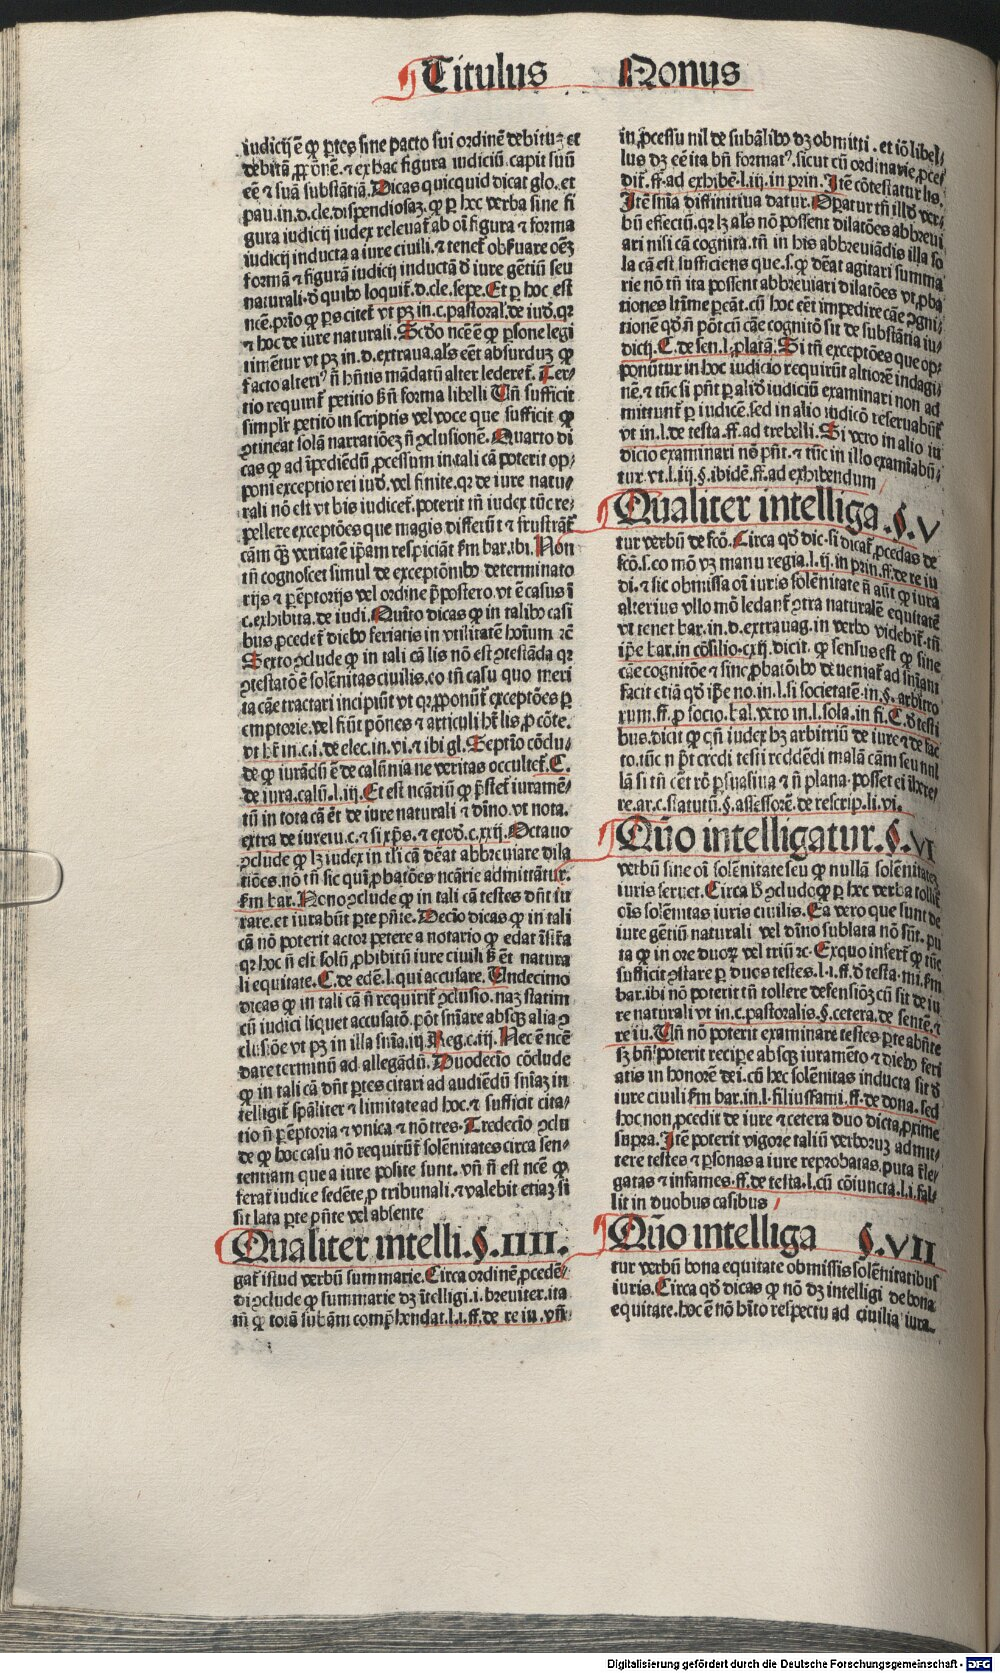 Titulus Nonus
iudicij ē ꝙ ꝑtes sine pacto sui ordinē debitū et
debitā ꝓ. Vñ ē. ⁊ ex hac figura iudiciū capit suū
eē ⁊ suā substātiā. Dicas quicquid dicat glo. et
pau. in. d. cle. dispendiosaȝ. ꝙ ꝑ hec verba sine fi
gura iudicij iudex releuat̄ ab oī figura ⁊ forma
iudicij inducta a iure ciuili. ⁊ tenet̄ obẜuare oēȝ
formā ⁊ figurā iudicij inductā đ iure gētiū seu
naturali. đ quibꝰ loquit̄. d. cle. sepe. Et ꝑ hoc est
ncē. prīo ꝙ ꝑs citet̄ vt pȝ in. c. pastoral. de iuđ. qꝛ
⁊ hoc de iure naturali. Scđo ncē ē ꝙ ꝑsone legi
timētur vt pȝ in. d. extraua. als eēt absurduȝ ꝙ
facto alteriꝰ ñ hñtis mādatū alter lederet̄. Ter-
tio requirit̄ petitio ẜ ñ forma libelli Tñ sufficit
simplr̄ petitō in scriptis vel voce que sufficit ꝙ
ꝯtineat solā narratiōeȝ ñ ꝯclusionē. Quarto di
cas ꝙ ad īpediēdū ꝓcessum in tali cā poterit op-
poni exceptio rei iuđ. vel finite. qꝛ de iure natu-
rali nō est vt bis iudicet̄. poterit tñ iudex tūc re-
pellere exceptōes que magis differūt ⁊ frustrāt̄
cām qȝ veritatē ip̄am respiciāt fm bar. ibi. Non
tñ cognoscet simul de exceptōnibꝰ determinato
rijs ⁊ ꝑēptorijs vel ordine p̄postero. vt ē casus ī
c. exhibita. de iudi. Quīto dicas ꝙ in talibꝰ casi
bus ꝓcedet̄ diebꝰ feriatis in vtilitatē hoīum ⁊c̄
Sexto ꝯclude ꝙ in tali cā lis nō est ꝯtestāda qꝛ
ꝯtestatō ē solēnitas ciuilis. eo tñ casu quo meri
ta cāe tractari incipiūt vt qꝛ ꝓponūt̄ exceptōes ꝑ
emptorie. vel fiūt pōnes ⁊ articuli hƀt lis ꝓ cōte.
vt hƀt in. c. i. de elec. in. vi. ⁊ ibi gl. Septīo cōclu-
de ꝙ iurādū ē de calūnia ne veritas occultet̄. C.
de iura. calū. l. iij. Et est ncāriū ꝙ p̄stet̄ iuramē-
tū in tota cā ēt de iure naturali ⁊ diīno. vt nota.
extra de iureiu. c. ⁊ si xp̄s. ⁊ exođ. c. xxij. Octauo
ꝯclude ꝙ lȝ iudex in tli cā deāt abbreuiare dila
tiōes. nō tñ sic qui ꝓbatōes ncārie admittātur.
fm bar. Nono ꝯclude ꝙ in tali cā testes dn̄t iu
rare. et iurabūt ꝑte pn̄te. Decīo dicas ꝙ in tali
cā nō poterit actoꝛ petere a notario ꝙ edat īsita
qꝛ hoc ñ est solū ꝓhibitū iure ciuili ẜ ēt natura
li equitate. C. de edē. l. qui accusare. Undecimo
dicas ꝙ in tali cā ñ requirit̄ ꝯclusio. naȝ statim
cū iudici liquet accusatō. pōt sn̄iare absqȝ alia ꝯ
clusiōe vt pȝ in illa sn̄ia. iij. Reg. c. iij. Nec ē ncē
dare terminū ad allegādū. Duodecīo cōclude
ꝙ in tali cā dn̄t ꝑtes citari ad audiēdū sn̄iaȝ in
telligit̄ spāliter ⁊ limitate ad hoc. ⁊ sufficit cita-
tio ñ ꝑēptoria ⁊ vnica ⁊ nō tres. Tredecīo ꝯclu
de ꝙ hoc casu nō requirūt̄ solēnitates circa sen-
tentiam que a iure posite sunt. vñ ñ est ncē ꝙ
ferat̄ iudice sedēte ꝓ tribunali. ⁊ valebit etiaȝ si
sit lata ꝑte pn̄te vel absente
Qualiter intelli. §. IIII.
gat̄ istud verbū summarie. Circa ordinē ꝓcedē-
di ꝯclude ꝙ summarie dȝ ītelligi. i. breuiter. ita
tñ ꝙ totā subām comp̄hendat. l. i. ff. de re iu. vñ
in ꝓcessu nil de subāliбꝰ dȝ obmitti. et iō libel-
lus dȝ eē ita bñ formatꝰ. sicut cū ordinarie ꝓce
dit̄. ff. ad exhibē. l. iij. in prin. Itē cōtestatur lis.
Itē sn̄ia diffinitiua datur. Oꝑatur tñ illđ ver-
bū effectū. qꝛ lȝ als nō possent dilatōes abbreui
ari nisi cā cognita. tñ in his abbreuiādis illa so
la cā est sufficiens que. s. ꝙ deāt agitari summa
rie nō tñ ita possent abbreuiari dilatōes vt ꝓba
tiones lr̄ime ꝑeāt. cū hoc eēt impedire cāe ꝯgni-
tionē qđ ñ pōt cū cāe cognitō sit de substātia iu-
dicij. C. de sen. l. ꝓlatā. Si tñ exceptōes que op-
ponūtur in hoc iudicio requirūt altiorē indagi
nē. ⁊ tūc si pn̄t ꝑ aliđ iudiciū examinari non ad
mittunt̄ ꝑ iudicē. sed in alio iudicō reseruabūt̄
vt in. l. de testa. ff. ad trebelli. Si vero in alio iu
dicio examinari nō pn̄t. ⁊ tūc in illo examīabū-
tur. vt. l. iij. §. ibidē. ff. ad exhibendum
Qualiter intelliga. §. V
tur verbū de fcō. Circa qđ dic. si dicat̄ ꝓcedas de
fcō. s. eo mō vȝ manu regia. l. ij. in prin. ff. de re iu
di. ⁊ sic obmissa oī iuris solēnitate ñ aūt ꝙ iura
alterius vllo mō ledant̄ ꝯtra naturalē equitatē
vt tenet bar. in. d. extrauag. in verbo videbit̄. tñ
ip̄e bar. in cōsilio. cxij. dicit. ꝙ sensus est ꝙ sine
cāe cognitōe ⁊ sine ꝓbatōibꝰ deueniat̄ ad sn̄iam
facit etiā qđ ip̄e no. in. l. si societatē. in. §. arbitro
rum. ff. ꝓ socio. bal. vero in. l. sola. in fi. C. đ testi
bus. dicit ꝙ qñ iudex hȝ arbitriū de iure ⁊ de fac
to. tūc ñ p̄t credi testi reddēdi malā cām seu nul
lā si tñ cēt rō ꝑsuasiua ⁊ ñ plana. posset ei ībere-
re. ar. c. statutū. §. assessorē. de rescrip. li. vi.
Qūo intelligatur. §. VI
verbū sine oī solēnitate seu ꝙ nullā solēnitateȝ
iuris seruet. Circa ẜ ꝯcludo ꝙ ꝑ hec verba tollit̄
oīs solēnitas iuris ciuilis. Ea vero que sunt de
iure gētiū naturali vel diīno sublata nō sūt. pu
ta ꝙ in ore duoꝝ vel triū ⁊c. Ex quo infert̄ ꝙ tūc
sufficit ꝯstare ꝑ duos testes. l. i. ff. đ testa. mi. fm
bar. ibi nō poterit tñ tollere defensiōȝ cū sit de iu
re naturali vt in. c. pastoralis. §. cetera. de sentē. ⁊
re iu. Tñ nō poterit examinare testes ꝑte abn̄te
sȝ bñ poterit recipe absqȝ iuramēto ⁊ diebꝰ feri
atis in honorē dei. cū hec solēnitas inducta sit đ
iure ciuili fm bar. in. l. filiusfami. ff. de dona. sed
hoc non ꝓcedit de iure ⁊ cetera duo dicta ꝓxime
supra. Itē poterit vigore taliū verboruȝ admit-
tere testes ⁊ ꝑsonas a iure reprobatas. puta r̄le-
gatas ⁊ infames. ff. de testa. l. cū cōiuncta. l. i. fal-
lit in duobus casibus
Qūo intelliga §. VII
tur verbū bona equitate obmissis solēnitatibus
iuris. Circa qđ dicas ꝙ nō dȝ intelligi de bona
equitate. hoc ē nō hīto respectu ad ciuilia iura.
Digitalisierung gefördert durch die Deutsche Forschungsgemeinschaft - DFG